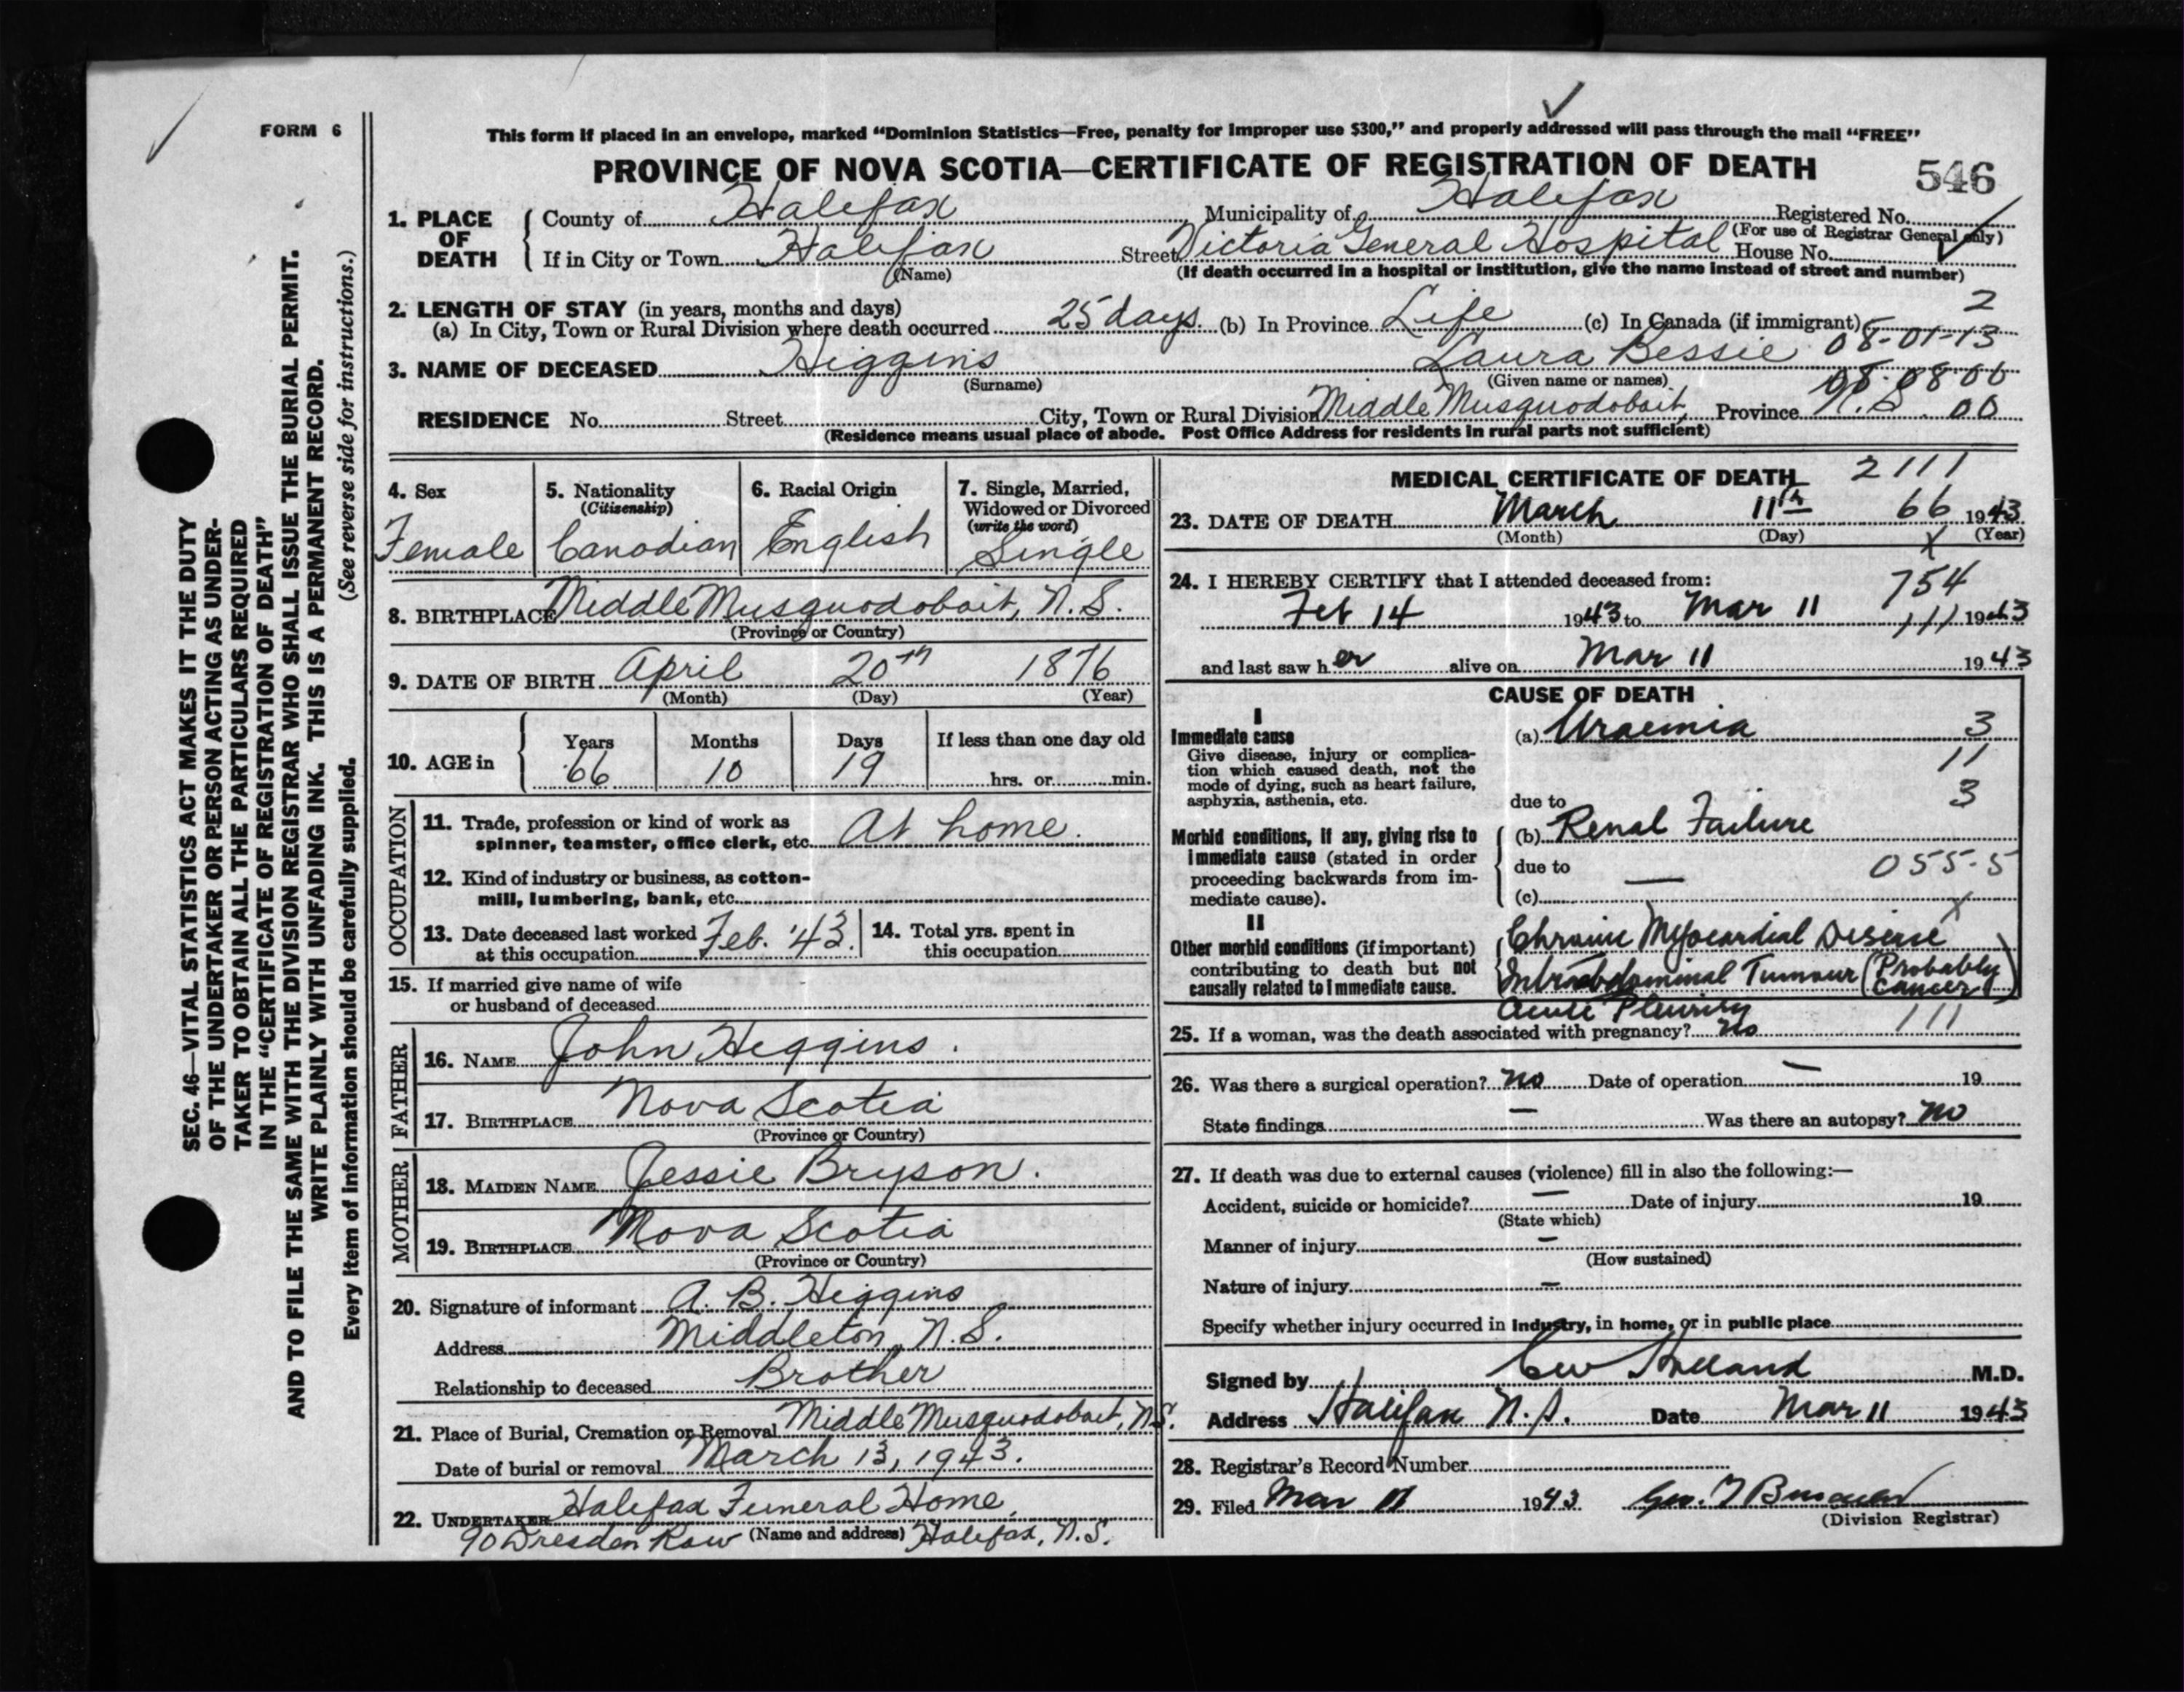 FORM 6
This form if placed in an envelope, marked “Dominion Statistics—Free, penalty for improper use $300,” and properly addressed will pass through the mail “FREE”
PROVINCE OF NOVA SCOTIA—CERTIFICATE OF REGISTRATION OF DEATH
546
SEC. 46—VITAL STATISTICS ACT MAKES IT THE DUTY
OF THE UNDERTAKER OR PERSON ACTING AS UNDER-
TAKER TO OBTAIN ALL THE PARTICULARS REQUIRED
IN THE “CERTIFICATE OF REGISTRATION OF DEATH”
AND TO FILE THE SAME WITH THE DIVISION REGISTRAR WHO SHALL ISSUE THE BURIAL PERMIT.
WRITE PLAINLY WITH UNFADING INK. THIS IS A PERMANENT RECORD.
Every item of information should be carefully supplied. (See reverse side for instructions.)
1. PLACE OF DEATH
County of Halifax Municipality of Halifax Registered No.
(For use of Registrar General only)
If in City or Town Halifax Street Victoria General Hospital House No.
(Name) (If death occurred in a hospital or institution, give the name instead of street and number)
2. LENGTH OF STAY (in years, months and days) 2
(a) In City, Town or Rural Division where death occurred 25 days. (b) In Province Life (c) In Canada (if immigrant)
08-01-13
3. NAME OF DECEASED Higgins Laura Bessie
(Surname) (Given name or names) 08-08 00
RESIDENCE No. Street City, Town or Rural Division Middle Musquodoboit, Province N.S. 00
(Residence means usual place of abode. Post Office Address for residents in rural parts not sufficient)
4. Sex Female
5. Nationality (Citizenship) Canadian
6. Racial Origin English
7. Single, Married, Widowed or Divorced (write the word) Single
8. BIRTHPLACE Middle Musquodoboit, N.S.
(Province or Country)
9. DATE OF BIRTH April 20th 1876
(Month) (Day) (Year)
10. AGE in Years 66 Months 10 Days 19 If less than one day old hrs. or min.
OCCUPATION
11. Trade, profession or kind of work as
spinner, teamster, office clerk, etc. At home.
12. Kind of industry or business, as cotton-
mill, lumbering, bank, etc.
13. Date deceased last worked at this occupation Feb. '43.
14. Total yrs. spent in this occupation
15. If married give name of wife
or husband of deceased
FATHER
16. NAME John Higgins.
17. BIRTHPLACE Nova Scotia
(Province or Country)
MOTHER
18. MAIDEN NAME Jessie Bryson.
19. BIRTHPLACE Nova Scotia
(Province or Country)
20. Signature of informant A. B. Higgins
Address Middleton, N.S.
Relationship to deceased Brother
21. Place of Burial, Cremation or Removal Middle Musquodoboit, N.S.
Date of burial or removal March 13, 1943.
22. UNDERTAKER Halifax Funeral Home,
90 Dresden Row (Name and address) Halifax, N.S.
MEDICAL CERTIFICATE OF DEATH 2111
23. DATE OF DEATH March 11th 66 1943
(Month) (Day) (Year)
24. I HEREBY CERTIFY that I attended deceased from: 754
Feb 14 1943 to Mar 11 111 1943
and last saw her alive on Mar 11 1943
CAUSE OF DEATH
I
Immediate cause (a) Uraemia 3
Give disease, injury or complica-
tion which caused death, not the
mode of dying, such as heart failure,
asphyxia, asthenia, etc.
11
3
due to
Morbid conditions, if any, giving rise to
immediate cause (stated in order
proceeding backwards from im-
mediate cause).
(b) Renal Failure
due to — 055-5
(c)
II
Other morbid conditions (if important)
contributing to death but not
causally related to immediate cause.
Chronic Myocardial Disease
Intraabdominal Tumour (Probably cancer)
Acute Pleurisy
25. If a woman, was the death associated with pregnancy? No 111
26. Was there a surgical operation? No Date of operation — 19
State findings — Was there an autopsy? No
27. If death was due to external causes (violence) fill in also the following:—
Accident, suicide or homicide? — Date of injury 19
(State which)
Manner of injury —
(How sustained)
Nature of injury —
Specify whether injury occurred in industry, in home, or in public place
Signed by CW Holland M.D.
Address Halifax N.S. Date Mar 11 1943
28. Registrar's Record Number
29. Filed Mar 11 1943 Geo.
(Division Registrar)